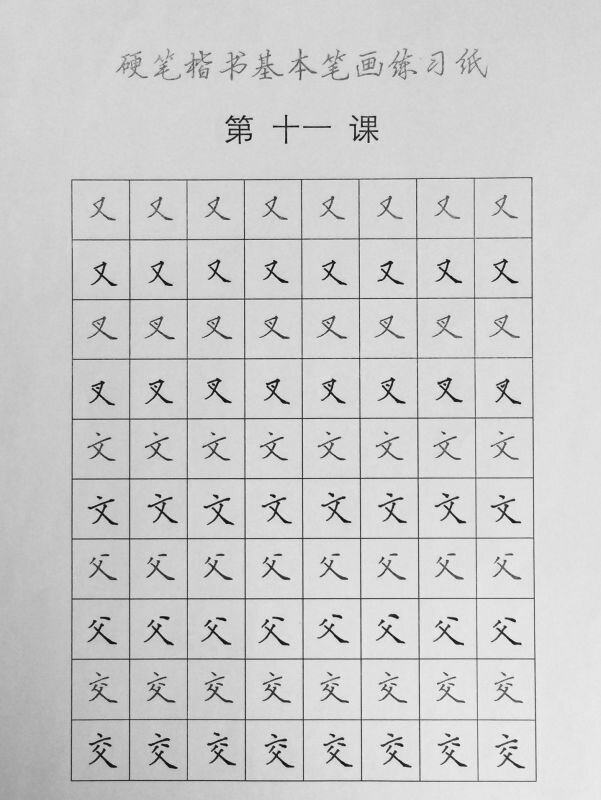 硬笔楷书基本笔画练习纸
第 十一 课
又 又 又 又 又 又 又 又
又 又 又 又 又 又 又 又
叉 叉 叉 叉 叉 叉 叉 叉
叉 叉 叉 叉 叉 叉 叉 叉
文 文 文 文 文 文 文 文
文 文 文 文 文 文 文 文
父 父 父 父 父 父 父 父
父 父 父 父 父 父 父 父
交 交 交 交 交 交 交 交
交 交 交 交 交 交 交 交